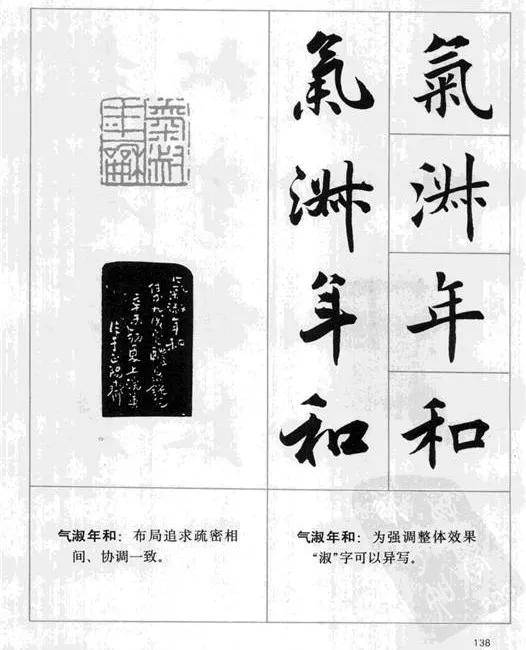 氣淑年和
氣淑年和
氣淑年和
氣淑年和
气淑年和：布局追求疏密相
间、协调一致。
气淑年和：为强调整体效果
“淑”字可以异写。
138